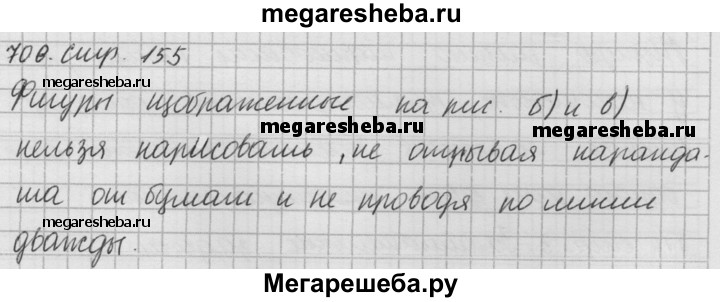 megaresheba.ru
706. стр. 155
megaresheba.ru
Фигуры изображенные на рис. б) и в)
megaresheba.ru
нельзя нарисовать, не отрывая каранда-
ша от бумаги и не проводя по линии
megaresheba.ru
дважды.
Мегарешеба.ру